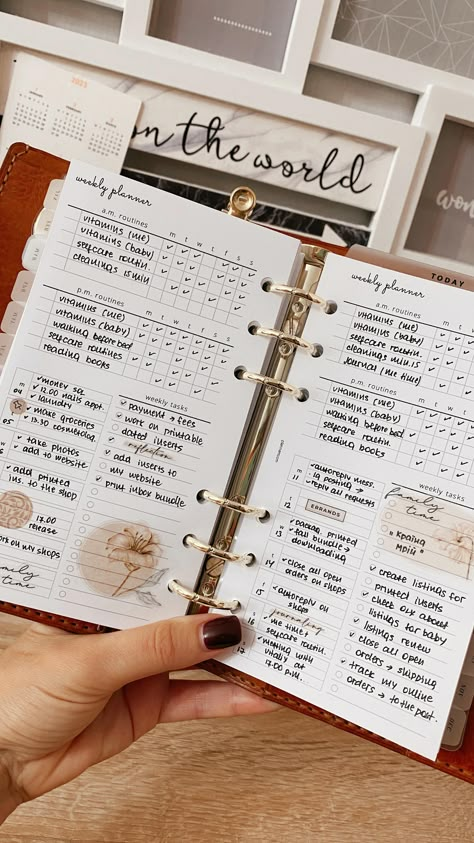 2023
on the world
won
TODAY
weekly planner
a.m. routines
m t w t f s s
vitamins (me)
vitamins (baby)
selfcare routin.
cleanings 15 min
p.m. routines
m t w t f s s
vitamins (me)
vitamins (baby)
walking before bed
selfcare routines
reading books
✓ money sa
✓ 12.00 nails appt.
✓ laundry
✓ make groceries
✓ 13.30 cosmetolog.
✓ take photos
✓ add to website
✓ add printed
inserts to the
shop
17.00
release
work on my shops
family
time
weekly tasks
✓ payment → fees
✓ work on printable
dated inserts
reflection
✓ add inserts to
my website
✓ print inbox bundle
weekly planner
m t w t f s s
vitamins (me)
vitamins (baby)
selfcare routin.
cleanings min.15
journal (me time)
p.m. routines
vitamins (me)
vitamins (baby)
walking before bed
selfcare routin.
reading books
11
✓ autoreply mess.
✓ ig posting →
reply all requests
12
ERRANDS
13
✓ packing printed
✓ fall bundle →
downloading
14
✓ close all open
orders on shops
15
✓ autoreply on
shops
journaling
16
✓ me time →
selfcare routin.
17
✓ meeting with
Vitaliy at
17.00 p.m.
weekly tasks
family
time
"Країна
мрій"
✓ create listings for
printed inserts
✓ check our about
✓ listings for baby
✓ listings review
✓ close all open
orders → shipping
✓ track my online
orders → to the post